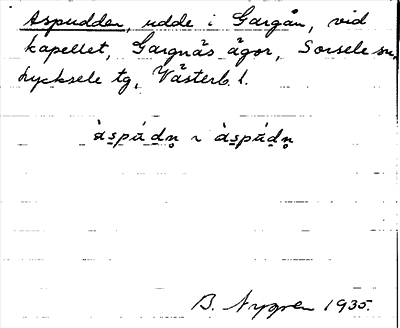 Aspudden, udde i Gargån, vid
kapellet, Gargnäs ägor, Sorsele sn,
Lycksele tg, Västerb. l.
àspádn̥ ~ àspádn̥
B. Nygren 1935.